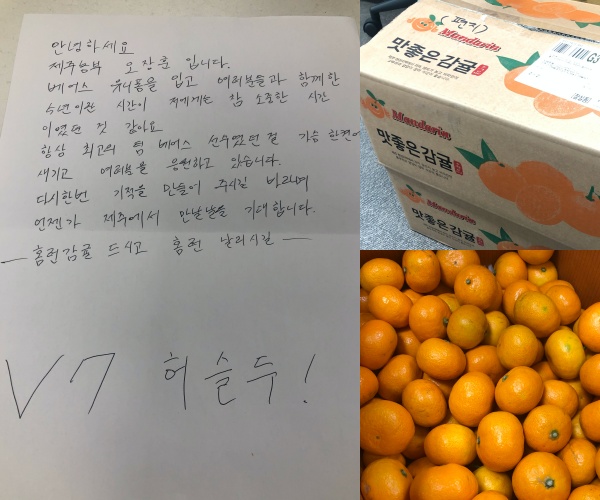 안녕하세요
제주농부 오장훈 입니다.
베어스 유니폼을 입고 여러분들과 함께한
수년이란 시간이 저에게는 참 소중한 시간
이였던 것 같아요
항상 최고의 팀 베어스 선수였던걸 가슴 한켠에
새기고 여러분을 응원하고 있습니다.
다시한번 기적을 만들어 주시길 바라며
언젠가 제주에서 만날날을 기대합니다.
— 홈런감귤 드시고 홈런 날리시길 —
V7 허슬두!
(편지)
Mandarin
맛좋은감귤
GJ
Mandarin
맛좋은감귤
Mandarin
맛좋은감귤